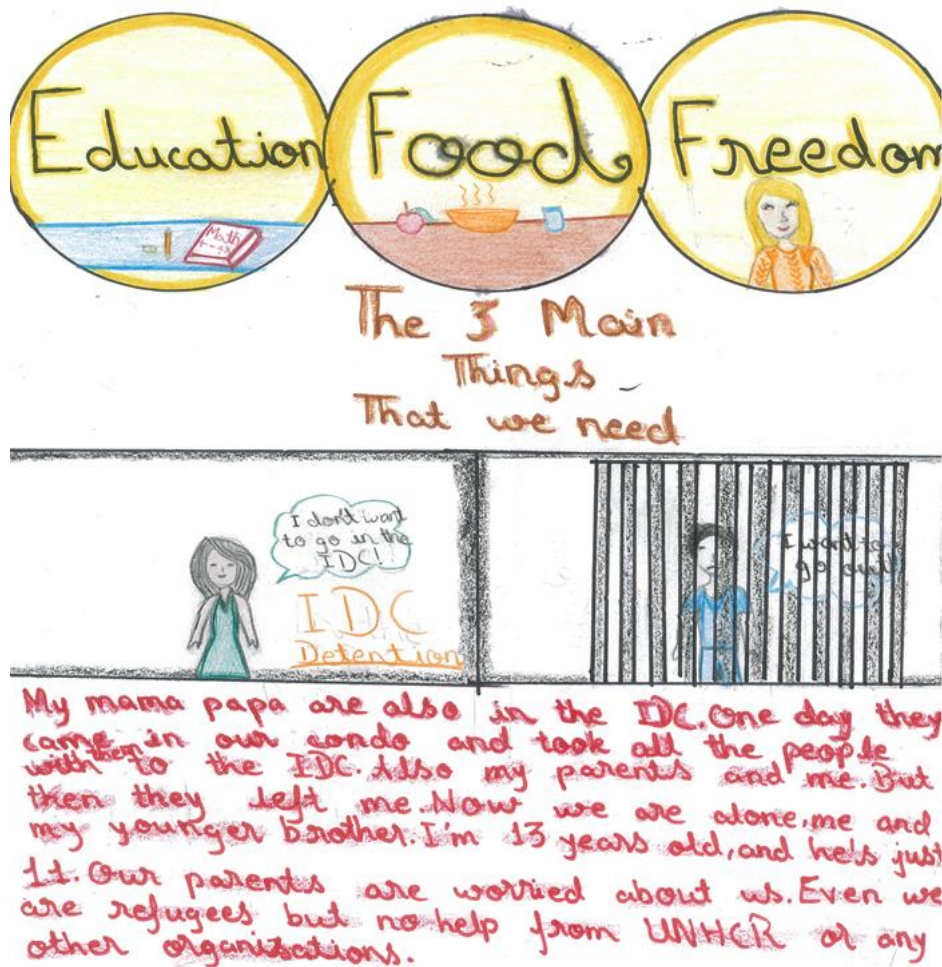 Education Food Freedom
Math
The 3 Main
Things
That we need
I don't want
to go in the
IDC!
IDC
Detention
I want to
go out!
My mama papa are also in the IDC. One day they
came in our condo and took all the people
with them to the IDC. Also my parents and me. But
then they left me. Now we are alone, me and
my younger brother. I'm 13 years old, and he's just
11. Our parents are worried about us. Even we
are refugees but no help from UNHCR or any
other organizations.